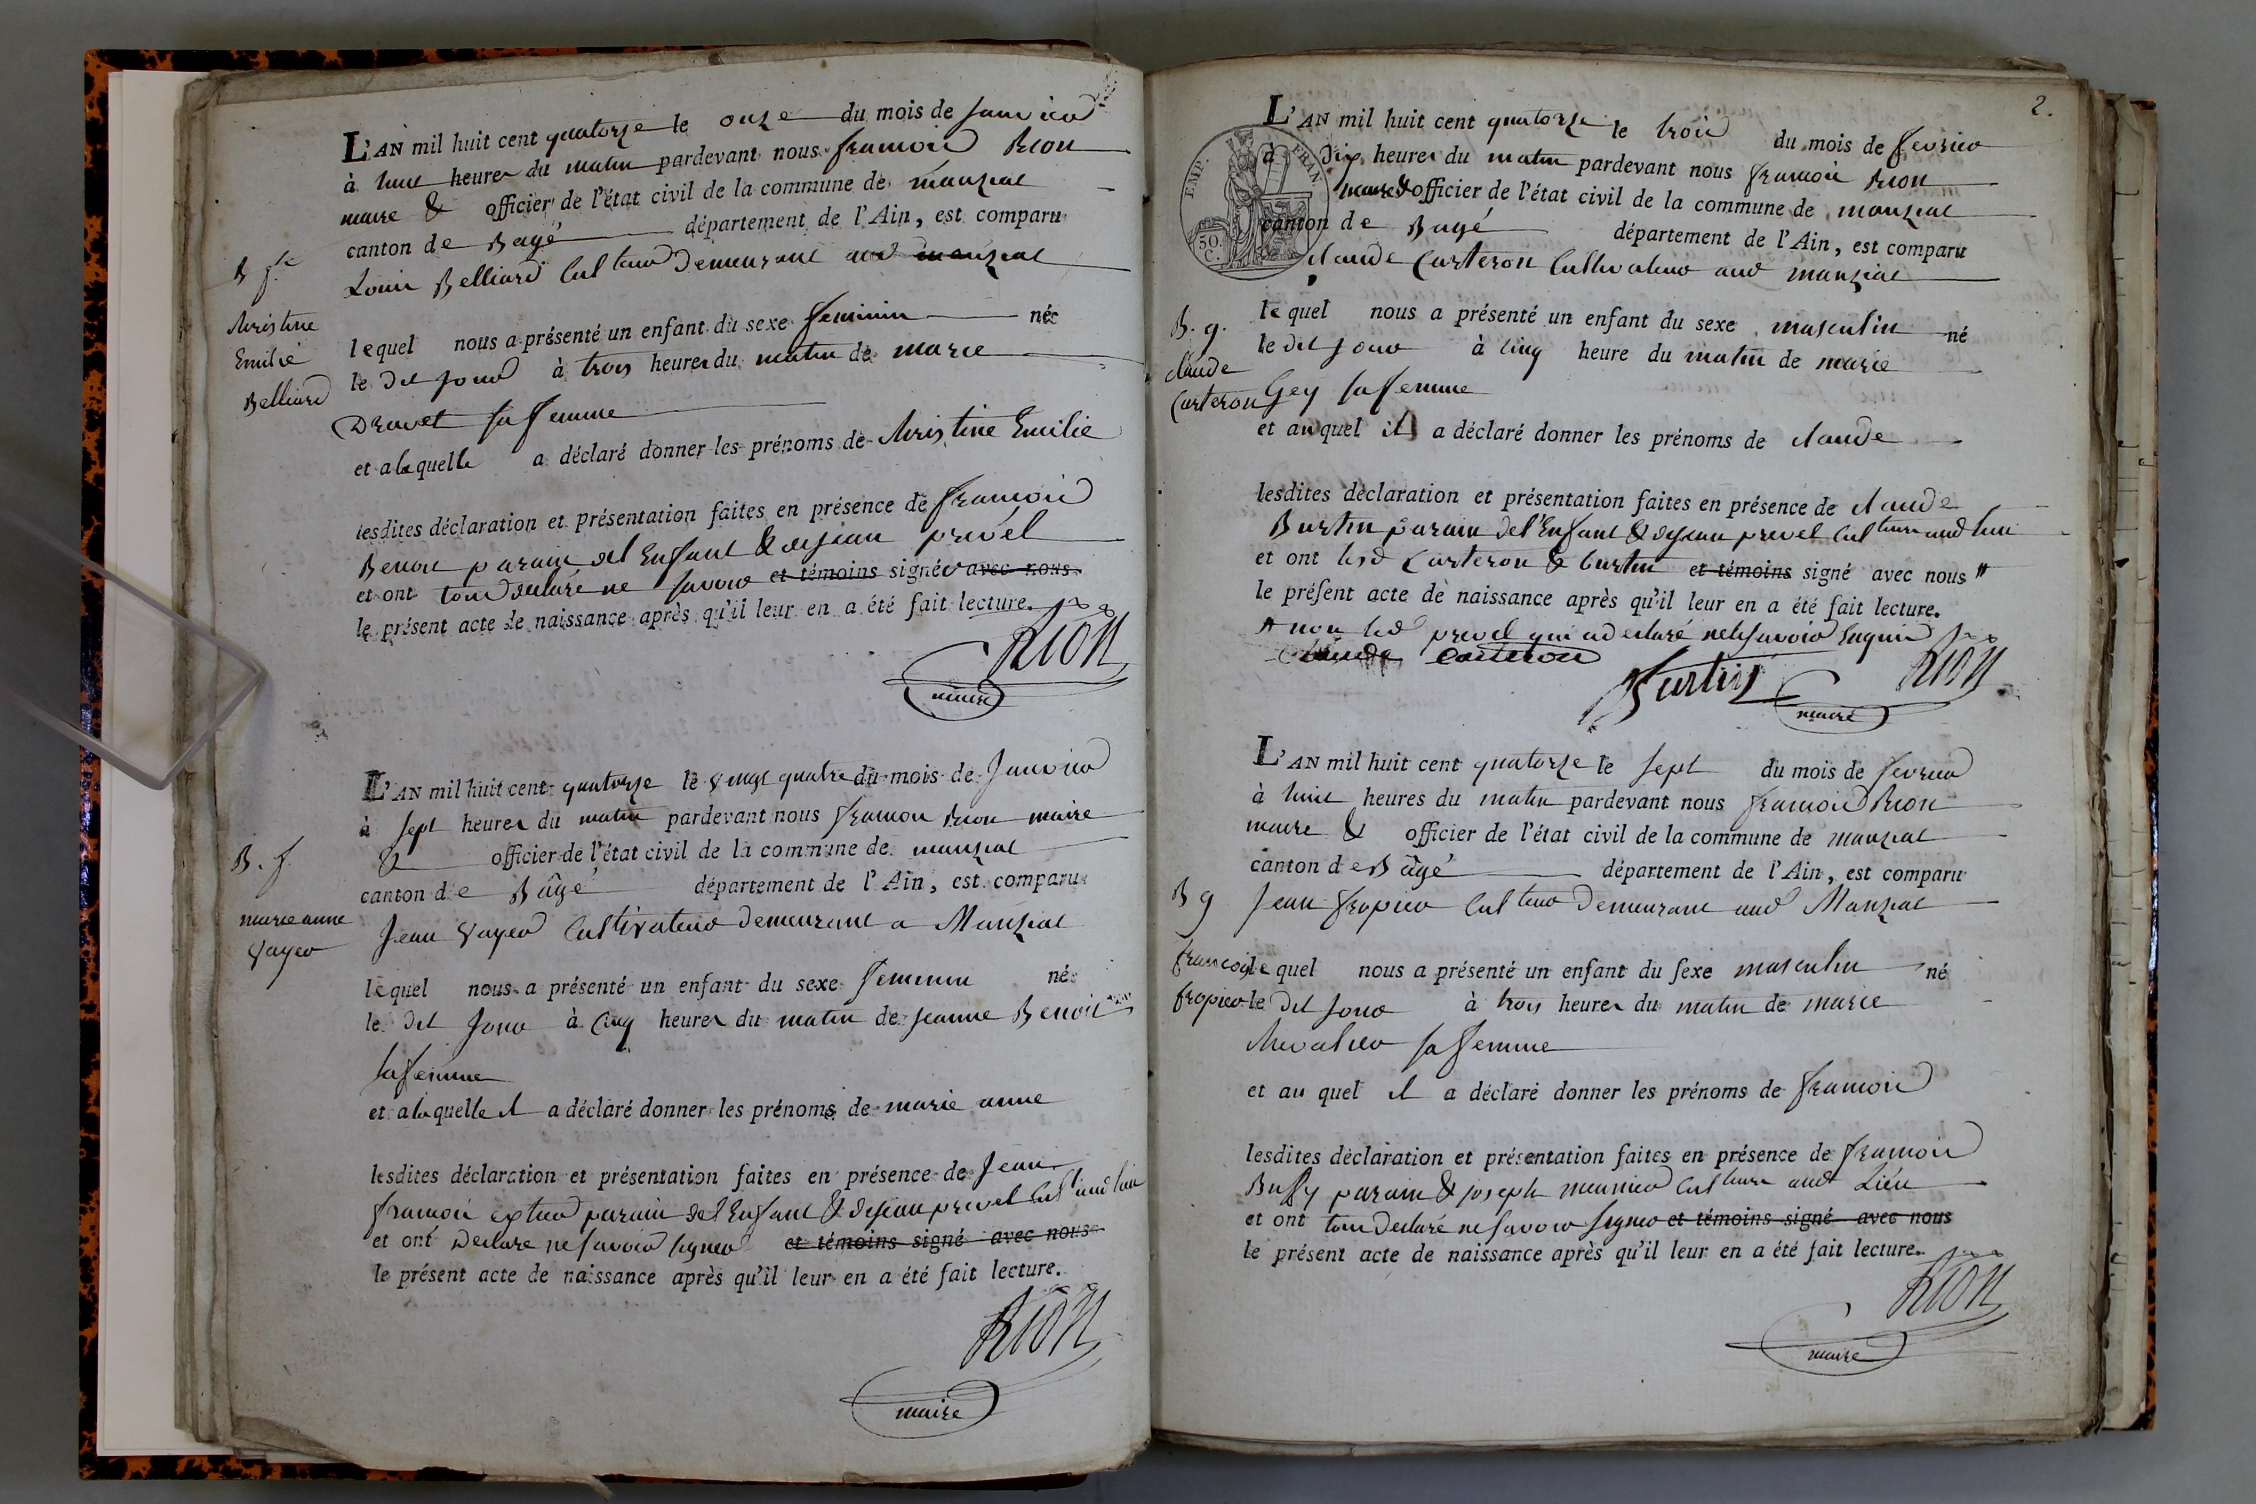 L'AN mil huit cent quatorze le onze du mois de Janvier
à huit heures du matin pardevant nous françois Rion
maire & officier de l'état civil de la commune de manziat
canton de Bagé département de l'Ain, est comparu
Louis Belliard Cultivateur Demeurant aud manziat
B f.
Christine
Emilie
Belliard
lequel nous a présenté un enfant du sexe feminin née
le dit jour à trois heures du matin de marie
Drevet sa femme
et a laquelle a déclaré donner les prénoms de Christine Emilie
lesdites déclaration et présentation faites en présence de françois
Benon parain de l'Enfant & de jean prevel
et ont tous declaré ne savoir et témoins signér avec nous
le présent acte de naissance après qu'il leur en a été fait lecture.
RION
maire
L'AN mil huit cent quatorze le vingt quatre du mois de Janvier
à sept heures du matin pardevant nous françois Rion maire
& officier de l'état civil de la commune de manziat
canton de Bâgé département de l'Ain, est comparu
Jean Vayer Cultivateur demeurant a Manziat
B. f.
marie anne
Vayer
lequel nous a présenté un enfant du sexe feminin né
le dit Jour à Cinq heures du matin de jeanne Benoit
sa femme
et a laquelle il a déclaré donner les prénoms de marie anne
lesdites déclaration et présentation faites en présence de Jean
françois parain de l'Enfant & de jean prevel
et ont Declaré ne savoir signer et témoins signé avec nous
le présent acte de naissance après qu'il leur en a été fait lecture.
RION
maire
2.
L'AN mil huit cent quatorze le trois du mois de fevrier
à Dix heures du matin pardevant nous françois Rion
maire & officier de l'état civil de la commune de manziat
canton de Bagé département de l'Ain, est comparu
Claude Carteron Cultivateur aud manziat
EMP. FRAN.
50.
C.
B. g.
claude
Carteron
le quel nous a présenté un enfant du sexe masculin né
le dit jour à cinq heure du matin de marie
Gey sa femme
et au quel il a déclaré donner les prénoms de claude
lesdites déclaration et présentation faites en présence de claude
Burtin parain de l'Enfant & de jean prevel aud lieu
et ont lesd Carteron & burtin et témoins signé avec nous #
le présent acte de naissance après qu'il leur en a été fait lecture.
# non led prevel qui a declaré ne le savoir Enquis
Claude Carteron
Burtin
RION
maire
L'AN mil huit cent quatorze le sept du mois de fevrier
à huit heures du matin pardevant nous françois Rion
maire & officier de l'état civil de la commune de manziat
canton de Bâgé département de l'Ain, est comparu
Jean fropier Cultivateur Demeurant aud Manziat
B g
francois
fropier
le quel nous a présenté un enfant du sexe masculin né
le dit jour à trois heures du matin de marie
Chevalier sa femme
et au quel il a déclaré donner les prénoms de françois
lesdites déclaration et présentation faites en présence de françois
Buffy parain & joseph meunier aud Lieu
et ont tous Declaré ne savoir signer et témoins signé avec nous
le présent acte de naissance après qu'il leur en a été fait lecture.
RION
maire